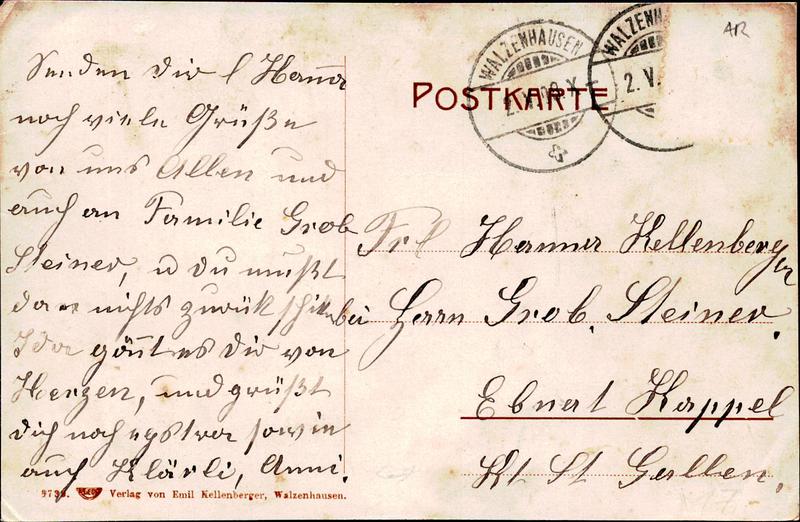 Senden dir l Hanna
noch viele Grüße
von uns Allen und
auch an Familie Grob
Steiner, u du mußt
da nichts zurük schiken
Ida gönt es Dir von
Herzen, und grüßt
dich noch extra sowie
auch Klärli, Anni.
AR
WALZENHAUSEN
WALZENH
2. V.
POSTKARTE
Frl Hanna Kellenberger
bei Herrn Grob. Steiner.
Ebnat Kappel
Kt St Gallen.
Verlag von Emil Kellenberger, Walzenhausen.